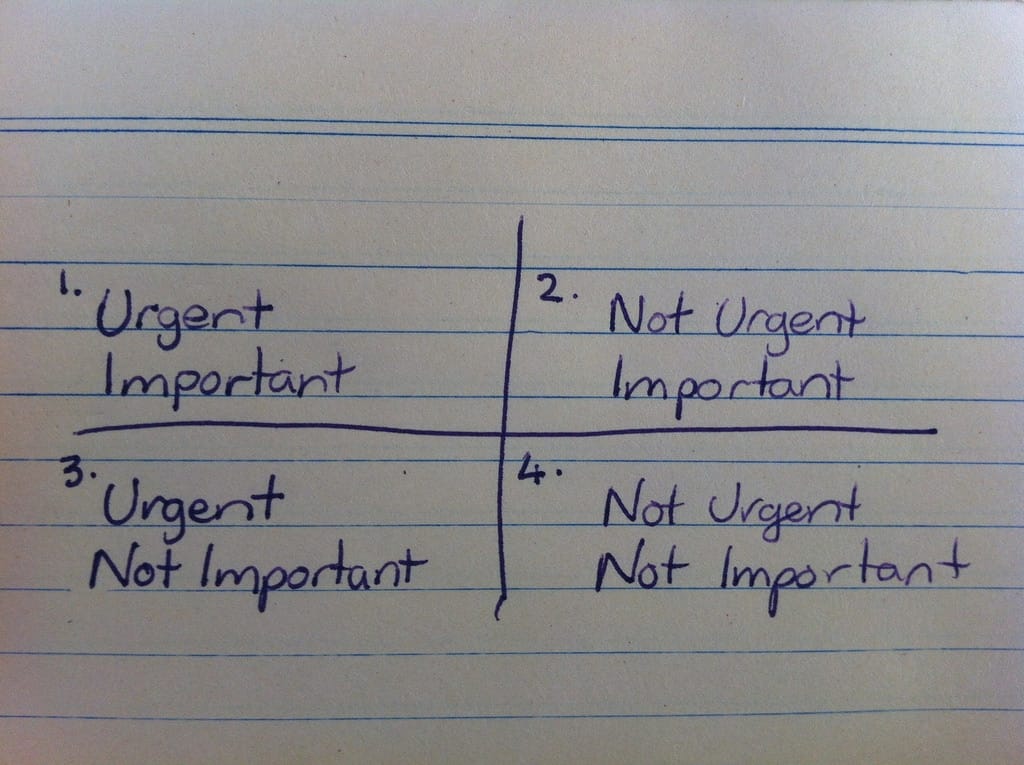 1. Urgent
Important
2. Not Urgent
Important
3. Urgent
Not Important
4. Not Urgent
Not Important